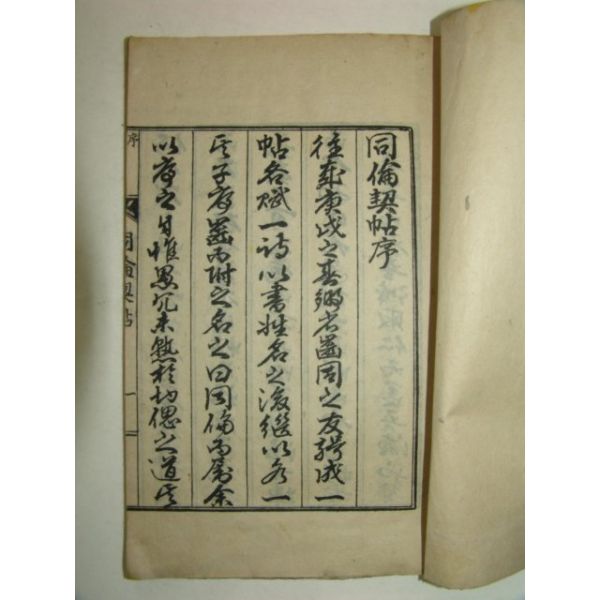 同倫契帖序
往歲庚戌之春鄉省齒同之友成一
帖各賦一詩以書姓名之後繼以各一
其子序齒而附之名之曰同倫而屬余
以序之自惟愚未熟於切偲之道其
序
同倫契帖
一